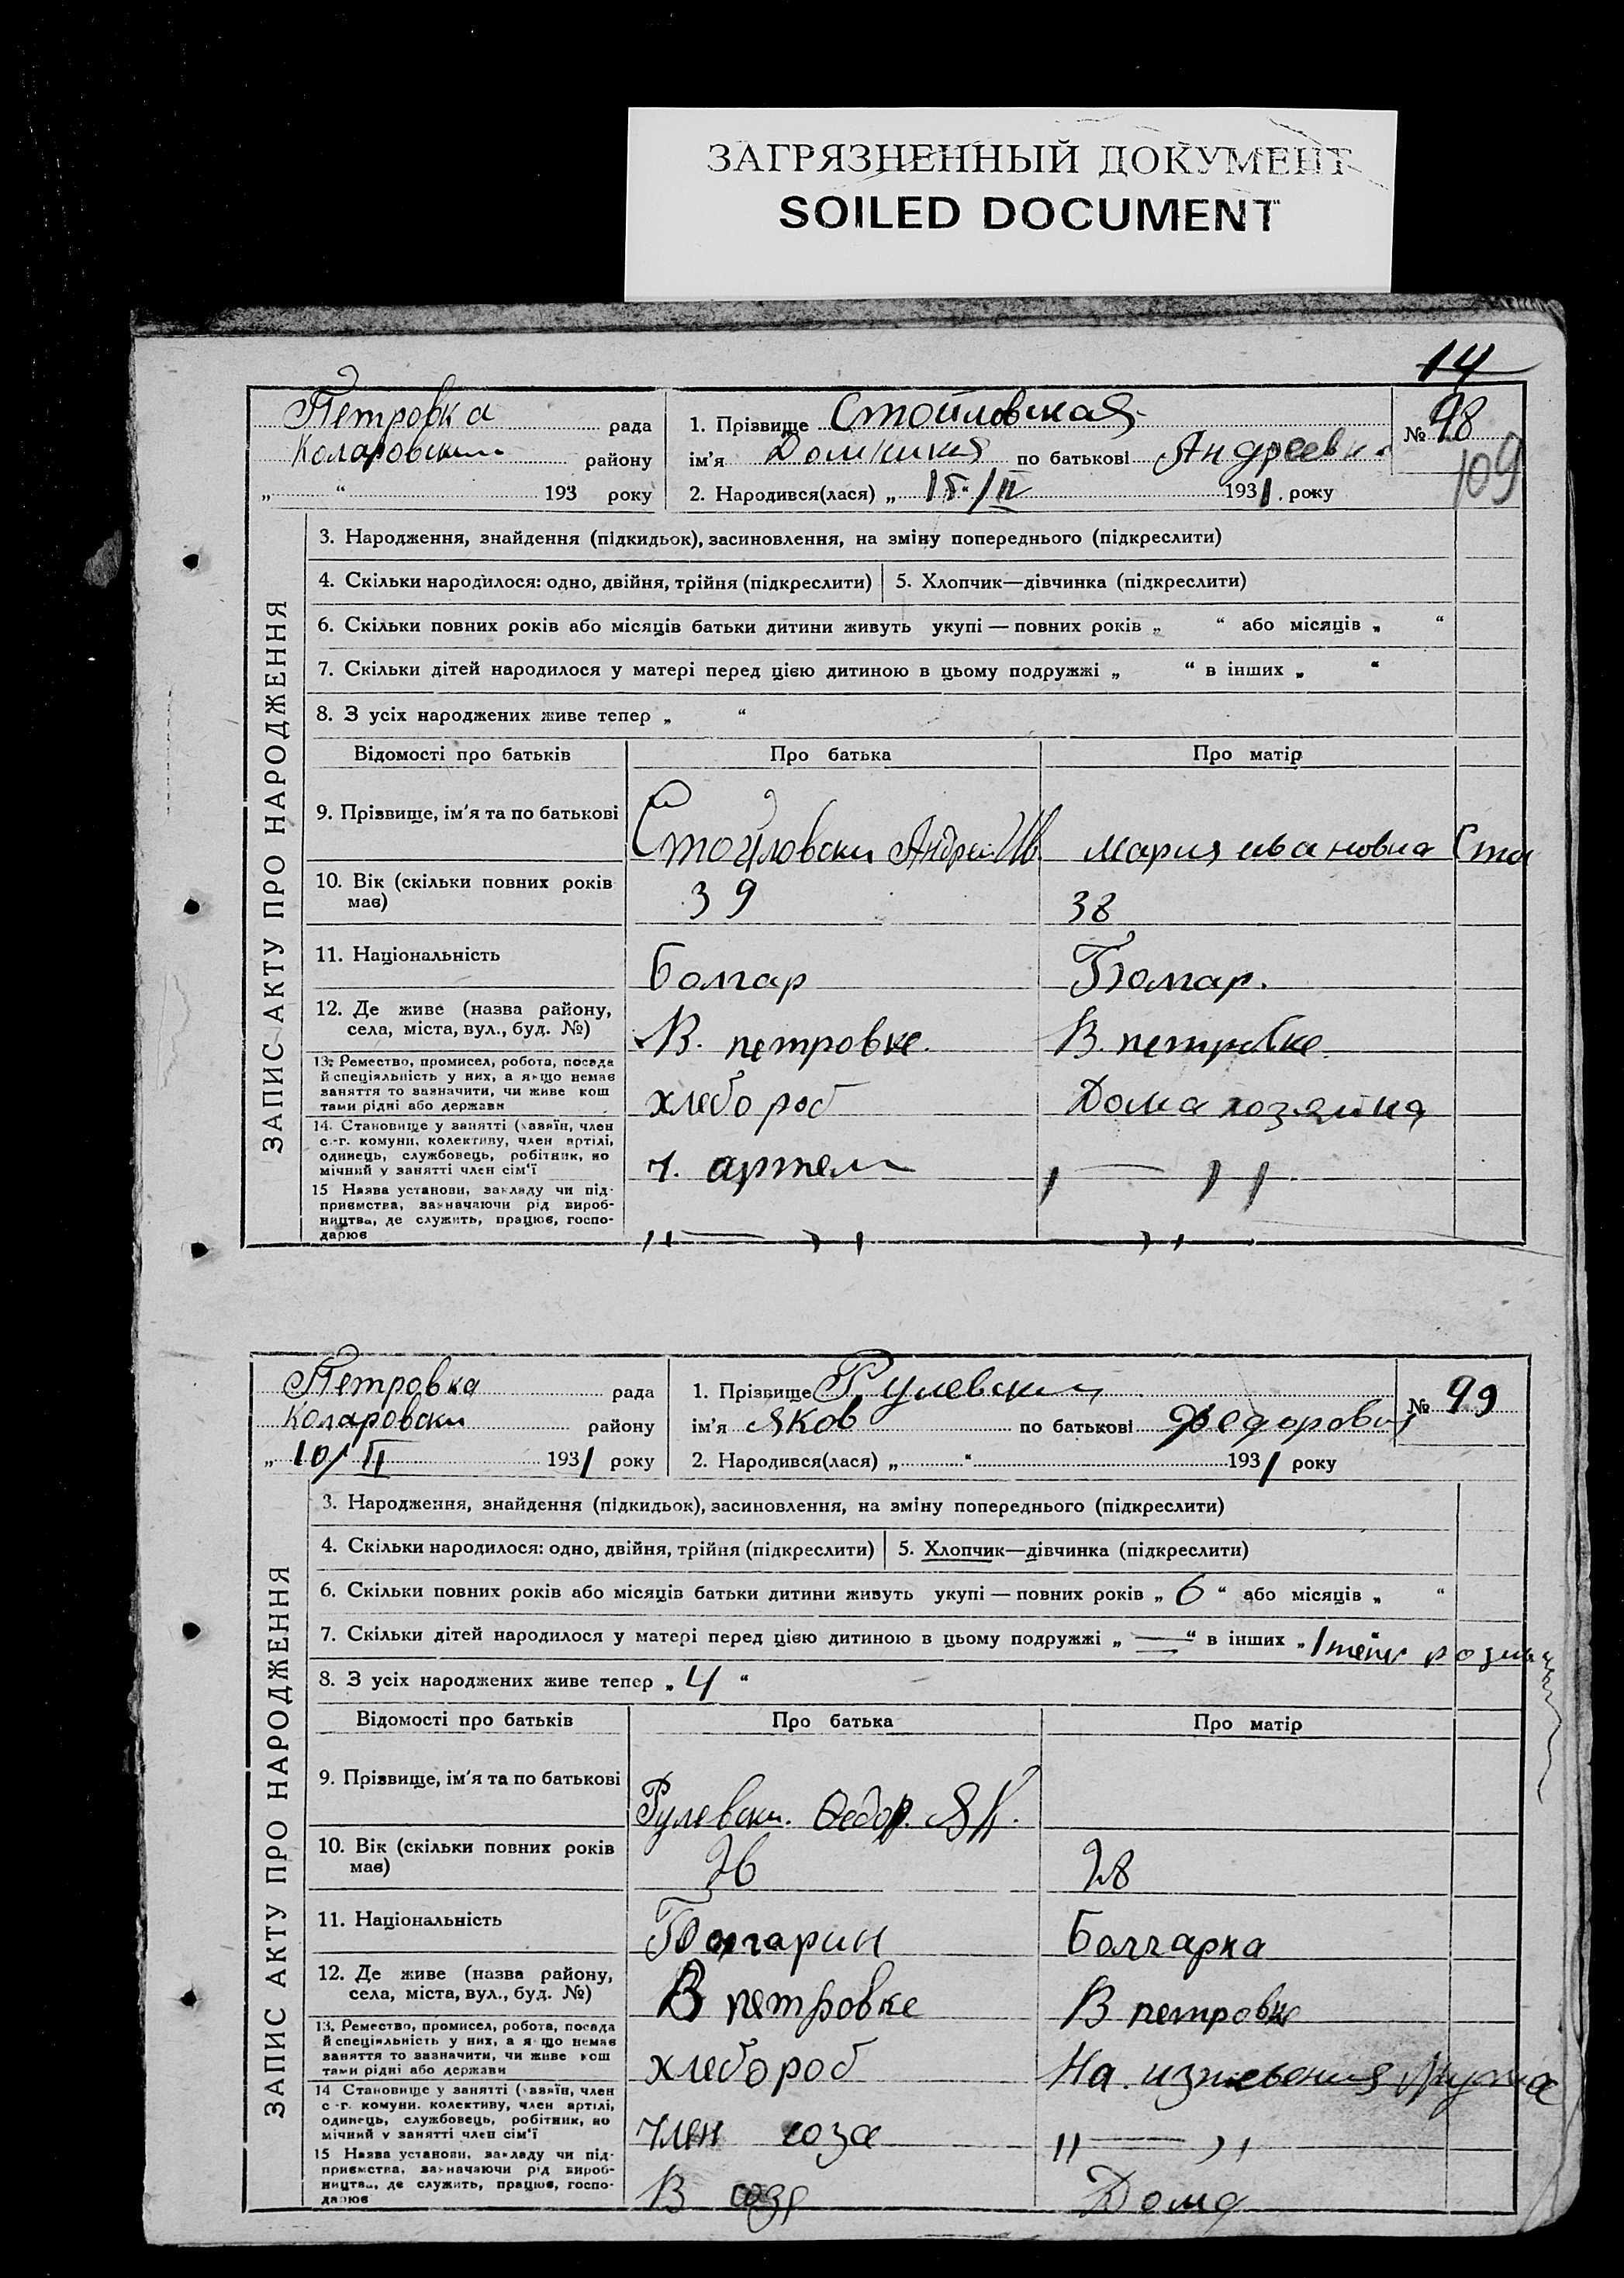 ЗАГРЯЗНЕННЫЙ ДОКУМЕНТ
SOILED DOCUMENT
14
Петровка рада
Коларовский району
„ “ 193 року
1. Прізвище Стойловская
ім'я Домникия по батькові Андреевна
2. Народився(лася) „ 15 “ /II 1931 року
№ 98
109
ЗАПИС АКТУ ПРО НАРОДЖЕННЯ
3. Народження, знайдення (підкидьок), засиновлення, на зміну попереднього (підкреслити)
4. Скільки народилося: одно, двійня, трійня (підкреслити) 5. Хлопчик—дівчинка (підкреслити)
6. Скільки повних років або місяців батьки дитини живуть укупі — повних років „ “ або місяців „ “
7. Скільки дітей народилося у матері перед цією дитиною в цьому подружжі „ “ в інших „ “
8. З усіх народжених живе тепер „ “
Відомості про батьків Про батька Про матір
9. Прізвище, ім'я та по батькові Стойловски Андрей Ив. Мария ивановна Сто
10. Вік (скільки повних років має) 39 38
11. Національність Болгар Болгар.
12. Де живе (назва району, села, міста, вул., буд. №) В. петровке. В. петровке
13. Ремество, промисел, робота, посада
й спеціяльність у них, а якщо немає
заняття то зазначити, чи живе кош
тами рідні або держави хлебороб Дома хозяйка
14. Становище у занятті (хазяїн, член
с.-г. комуни, колективу, член артілі,
одинець, службовець, робітник, по
мічний у занятті член сім'ї ч. артели „ — „
15 Назва установи, закладу чи під-
приємства, зазначаючи рід вироб-
ництва, де служить, працює, госпо-
дарює „ — „ „
Петровка рада
Коларовски району
„ 10/II 1931 року
1. Прізвище Рулевский
ім'я Яков по батькові Федорович
2. Народився(лася) „ “ 1931 року
№ 99
ЗАПИС АКТУ ПРО НАРОДЖЕННЯ
3. Народження, знайдення (підкидьок), засиновлення, на зміну попереднього (підкреслити)
4. Скільки народилося: одно, двійня, трійня (підкреслити) 5. Хлопчик—дівчинка (підкреслити)
6. Скільки повних років або місяців батьки дитини живуть укупі — повних років „ 6 “ або місяців „ “
7. Скільки дітей народилося у матері перед цією дитиною в цьому подружжі „ — “ в інших „
8. З усіх народжених живе тепер „ 4 “
Відомості про батьків Про батька Про матір
9. Прізвище, ім'я та по батькові Рулевски. Федор. Як.
10. Вік (скільки повних років має) 26 28
11. Національність Болгарин Болгарка
12. Де живе (назва району, села, міста, вул., буд. №) В петровке В петровке
13. Ремество, промисел, робота, посада
й спеціяльність у них, а якщо немає
заняття то зазначити, чи живе кош
тами рідні або держави хлебороб На иждевения мужа
14 Становище у занятті (хазяїн, член
с.-г. комуни, колективу, член артілі,
одинець, службовець, робітник, по
мічний у занятті член сім'ї член соза „ — „
15 Назва установи, закладу чи під-
приємства, зазначаючи рід вироб-
ництва, де служить, працює, госпо-
дарює В созе Дома